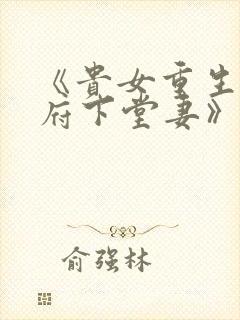 《貴女重生
府下堂妻》
俞强林